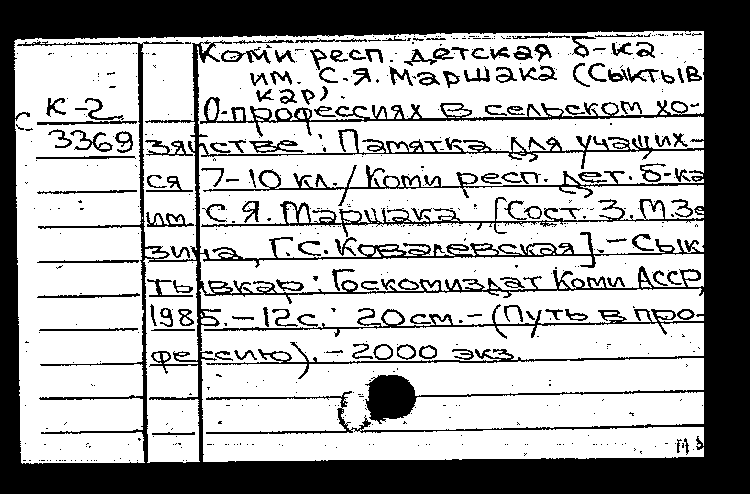 Коми респ. детская б-ка
им. С.Я. Маршака (Сыктыв
кар).
С К-2
3369
О профессиях в сельском хо-
зяйстве : Памятка для учащих-
ся 7-10 кл./ Коми респ. дет. б-ка
им. С.Я. Маршака ; [Сост. З.М.Зе
зина, Г.С. Ковалевская]. - Сык
тывкар : Госкомиздат Коми АССР,
1985. - 12с. ; 20см. - (Путь в про-
фессию). - 2000 экз.